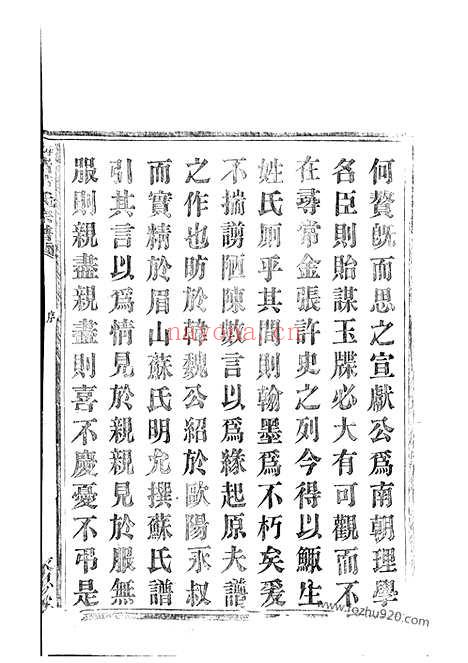 何贅既而思之宣獻公爲南朝理學
名臣則貽謀玉牒必大有可觀而不
在尋常金張許史之列今得以鯫生
姓氏厠乎其間則翰墨爲不朽矣爰
不揣謭陋陳數言以爲緣起原夫譜
之作也昉於韓魏公紹於歐陽永叔
而實精於眉山蘇氏明允撰蘇氏譜
引其言以爲情見於親親見於服無
服則親盡親盡則喜不慶憂不弔是
序
nayona.cn
www.fozhu920.com